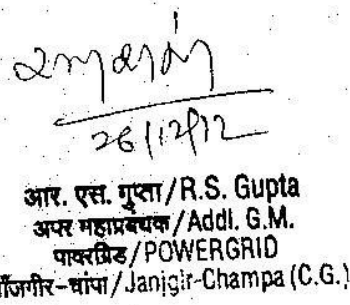 26/12/12
आर. एस. गुप्ता/R.S. Gupta
अपर महाप्रबंधक/Addl. G.M.
पावरग्रिड/POWERGRID
जाँजगीर-चांपा/Janjgir-Champa (C.G.)